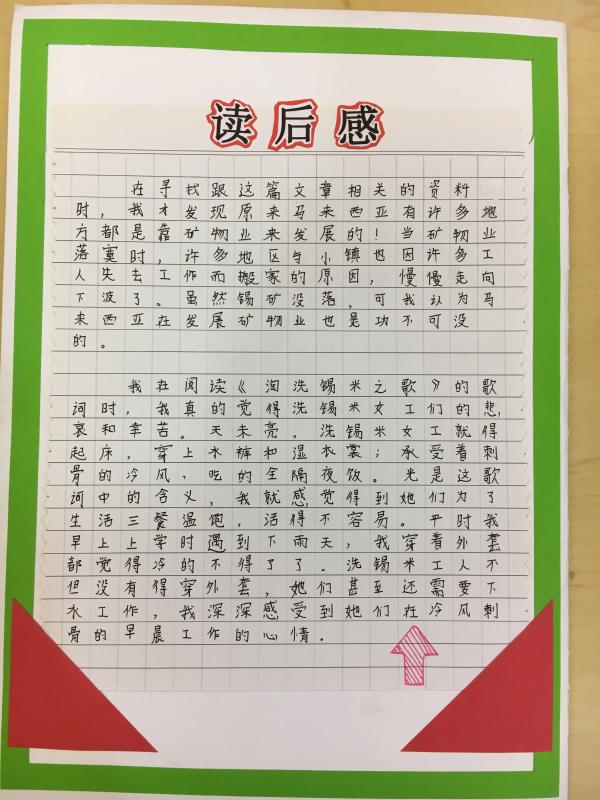 读后感
在寻找跟这篇文章相关的资料
时，我才发现原来马来西亚有许多地
方都是靠矿物业来发展的！当矿物业
落寞时，许多地区与小镇也因许多工
人失去工作而搬家的原因，慢慢走向
下波了。虽然锡矿没落，可我认为马
来西亚在发展矿物业也是功不可没
的。
我在阅读《淘洗锡米之歌》的歌
词时，我真的觉得洗锡米女工们的悲，
哀和辛苦。天未亮，洗锡米女工就得
起床，穿上水裤和湿衣裳；承受着刺
骨的冷风，吃的全隔夜饭。光是这歌
词中的含义，我就感觉得到她们为了
生活三餐温饱，活得不容易。平时我
早上上学时遇到下雨天，我穿着外套
都觉得冷的不得了了。洗锡米工人不
但没有得穿外套，她们甚至还需要下
水工作，我深深感受到她们在冷风刺
骨的早晨工作的心情。